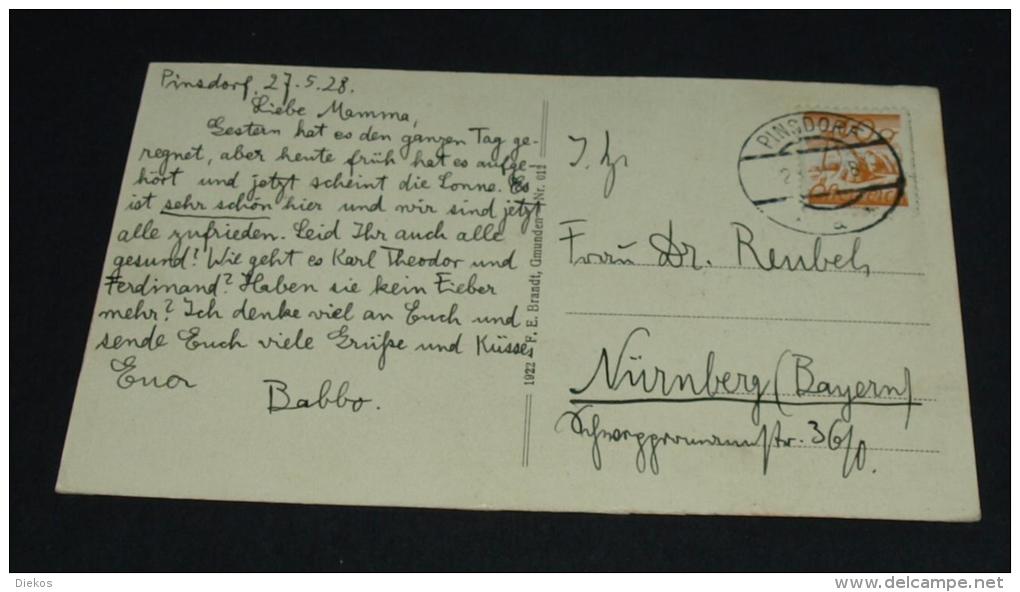 Pinsdorf, 27.5.28.
Liebe Mamma,
Gestern hat es den ganzen Tag ge-
regnet, aber heute früh hat es aufge-
hört und jetzt scheint die Sonne. Es
ist sehr schön hier und wir sind jetzt
alle zufrieden. Seid Ihr auch alle
gesund? Wie geht es Karl Theodor und
Ferdinand? Haben sie kein Fieber
mehr? Ich denke viel an Euch und
sende Euch viele Grüße und Küsse,
Euer
Babbo.
1922 F. E. Brandt, Gmunden Nr. 011
PINSDORF
a
Frau Dr.
Nürnberg (Bayern)
36/0.
Diekos
www.delcampe.net